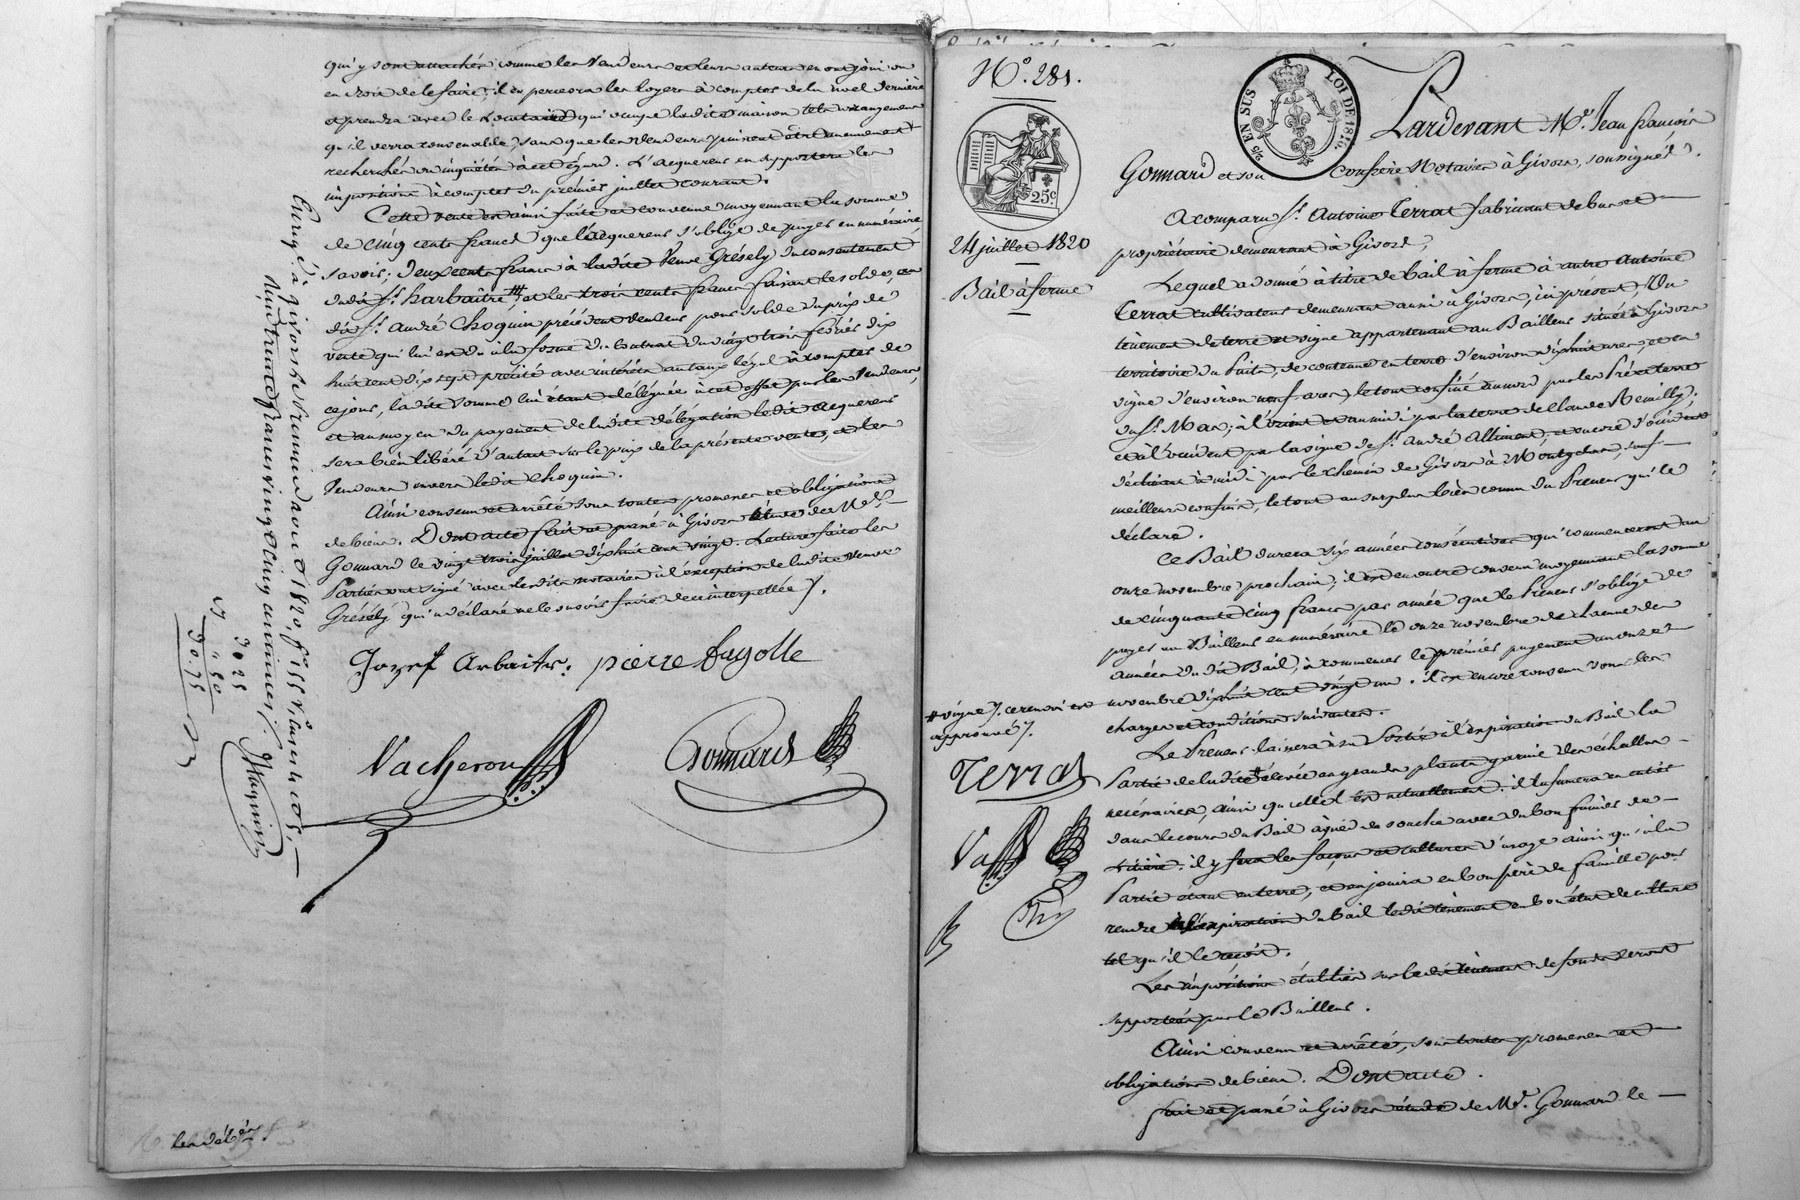 qui y sont attachés comme les Vendeurs et leurs auteurs en ont joui ou
eu droit de le faire; il en percevra les loyers à compter de la noel dernière
et prendra avec le Locataire qui occupe ladite maison tels arrangements
qu'il verra convenable, sans que les Vendeurs puissent être aucunement
recherchés ou inquiétés à cet égard. L'acquereur en supportera les
impositions à compter du premier juillet courant.
Cette vente est ainsi faite et convenue moyennant la somme
de cinq cents francs que l'acquereur s'oblige de payer en numéraire,
savoir; deux cents francs à ladite Veuve Grésely du consentement
dudit Sr. harbaitre, et les trois cents francs faisant le solde, au
dit Sr. André Choquin précédent vendeur pour solde du prix de
vente qui lui est dû à la forme du Contrat du vingt trois février dix
huit cent dix sept précité avec intérêts au taux légal à compter de
ce jour, ladite somme lui étant déléguée à cet effet par les Vendeurs,
et au moyen du payement de ladite délégation ledit acquereur
sera bien libéré d'autant sur le prix de la présente vente, et les
Vendeurs envers ledit Choquin.
Ainsi convenu et arrêté sous toutes promesses et obligations
de biens. Dont acte fait et passé à Givors étude de Me.
Gonnard le vingt trois juillet dix huit cent vingt. Lecture faite les
Parties ont signé avec lesdits notaires à l'exception de ladite Veuve
Grésely qui a déclaré ne le savoir faire de ce interpellée /.
Jozef Arbaitre. pierre fayolle
Vacheron Gonnard
Enreg. à Givors le premier aout 1820, fo. 155
Reçu trente francs vingt cinq centimes /.
30 25
" 50
30.75
Magnin
No. 281.
25c
24 juillet 1820
Bail à ferme
25 EN SUS
LOI DE 1816.
Pardevant Me. Jean francois
Gonnard et son Confrère Notaires à Givors, soussignés.
A comparu Sr. Antoine Terrat fabricant de bas et
propriétaire demeurant à Givors,
Lequel a donné à titre de bail à ferme à autre Antoine
Terrat cultivateur demeurant aussi à Givors, ici present, Un
tènement de terre et vigne appartenant au Bailleur situé à Givors
territoire du Puits, de contenue en terre d'environ dix huit ares, et en
vigne d'environ neuf ares, le tout confiné au nord par les Pré et terre
du Sr. Mar; à l'orient et au midi par la terre de Claude Remilly,
et à l'occident par la vigne de Sr. André Alliment, et encore d'occident
déclinant à midi par le chemin de Givors à Montgelas, sauf
meilleurs confins, le tout au surplus bien connu du Preneur qui le
déclare.
Ce Bail durera six années consécutives qui commenceront au
onze novembre prochain; il est en outre convenu moyennant la somme
de cinquante cinq francs par année que le Preneur s'oblige de
payer au Bailleur en numéraire le onze novembre de chacune des
années du dit Bail, à commencer le premier payement au onze
novembre dix huit cent vingt un. il est encore convenu sous les
charges et conditions suivantes.
Le Preneur laissera à sa Sortie à l'expiration du Bail la
Partie de ladite # élevée en grands plants garnie des échallas
nécessaires, ainsi qu'elle l'est actuellement. il la fumera en entier
dans le cours du Bail à pied de souche avec du bon fumier de
litière. il y fera les façons et cultures d'usage ainsi qu'à la
Partie étant en terre, et en jouira en bon père de famille pour
rendre à l'expiration du bail ledit tènement en bon état de culture
tel qu'il le reçoit.
Les impositions établies sur ledit tènement de fonds seront
supportées par le Bailleur.
Ainsi convenu et arrêté, sous toutes promesses et
obligations de biens. Dont acte.
fait et passé à Givors étude de Me. Gonnard le
# vigne /. ce renvoi est
approuvé /.
Terrat